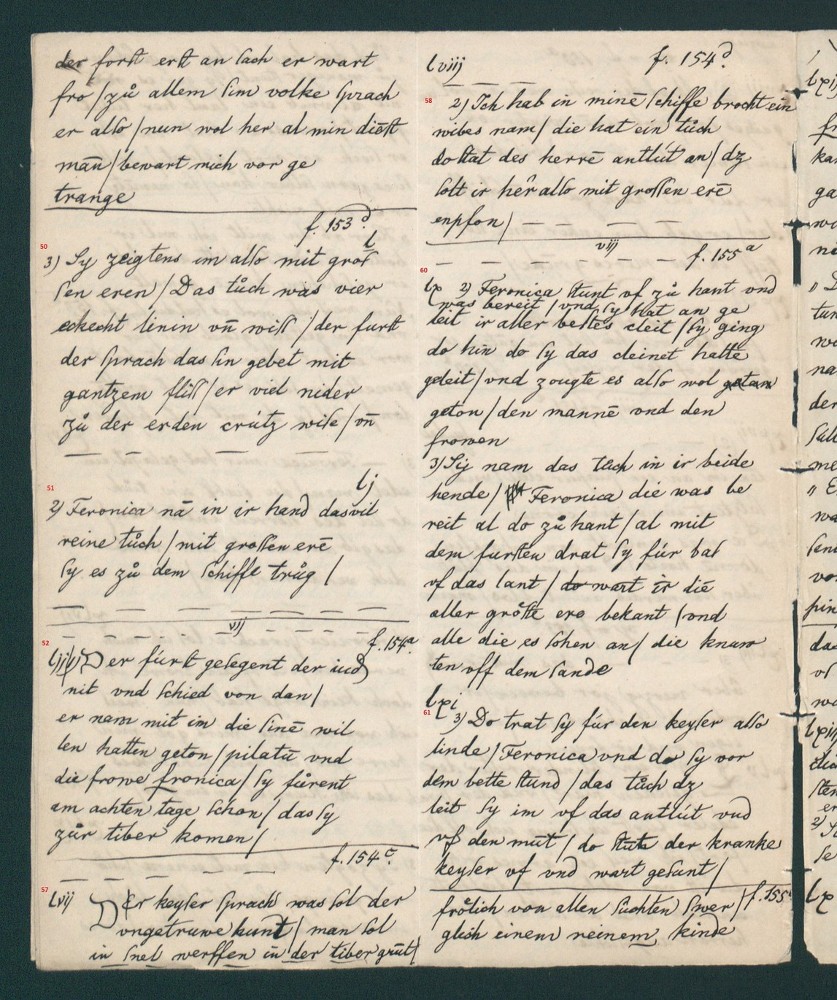 der forst erst an sach er wart
fro / zů allem sim volke sprach
er also / nun wol her al min diēst
mān / bewart mich vor ge
trange
f. 153 d.
50
l
3) Sy zeigtens im also mit gros
sen eren / Das tůch was vier
eckecht linin vn̄ wiss / der furst
der sprach das sin gebet mit
gantzem fliss / er viel nider
zů der erden crútz wise / vn̄
51
lj
2) Feronica nā in ir hand das vil
reine tůch / mit grossen erē
sy es zů dem schiffe trůg /
vij
52
f. 154 a
Der fúrst gelegent der iud
nit vnd schied von dan /
er nam mit im die sinē wil
len hatten geton / pilatū vnd
die frowe fronica / sy fůrent
am achten tage schon / das sy
zůr tiber komen /
f. 154 c.
57
lvij
Der keyser sprach was sol der
vngetruwe hunt / man sol
in snel werffen in der tiber grůt /
lviij
f. 154 d.
58
2) Ich hab in minē schiffe brocht ein
wibes nam / die hat ein tůch
do stat des herrē antlút an / dz
solt ir hēr also mit grossen erē
enpfon /
vij
f. 155 a
60
lx 2) Feronica stunt vf zů hant vnd
was bereit / vnd sy hat an ge
leit ir aller bestes cleit / sy ging
do hin do sy das cleinet hatte
geleit / vnd zougte es also wol getan
geton / den mannē vnd den
frowen
3) Sij nam das tůch in ir beide
hende / Feronica die was be
reit al do zů hant / al mit
dem fursten drat sy fúr bas
vf das lant / do wart ir die
aller gröste ere bekant / vnd
alle die es sohen an / die knuw
ten vff dem sande
lxi
61
3) Do trat sy fúr den keyser also
linde / Feronica vnd do sy vor
dem bette stund / das tůch dz
leit sy im vf das antlút vnd
vf den mut / do stůt der kranke
keyser vf vnd wart gesunt /
f. 155
frölich von allen suchten swer /
glich einem reinem kinde